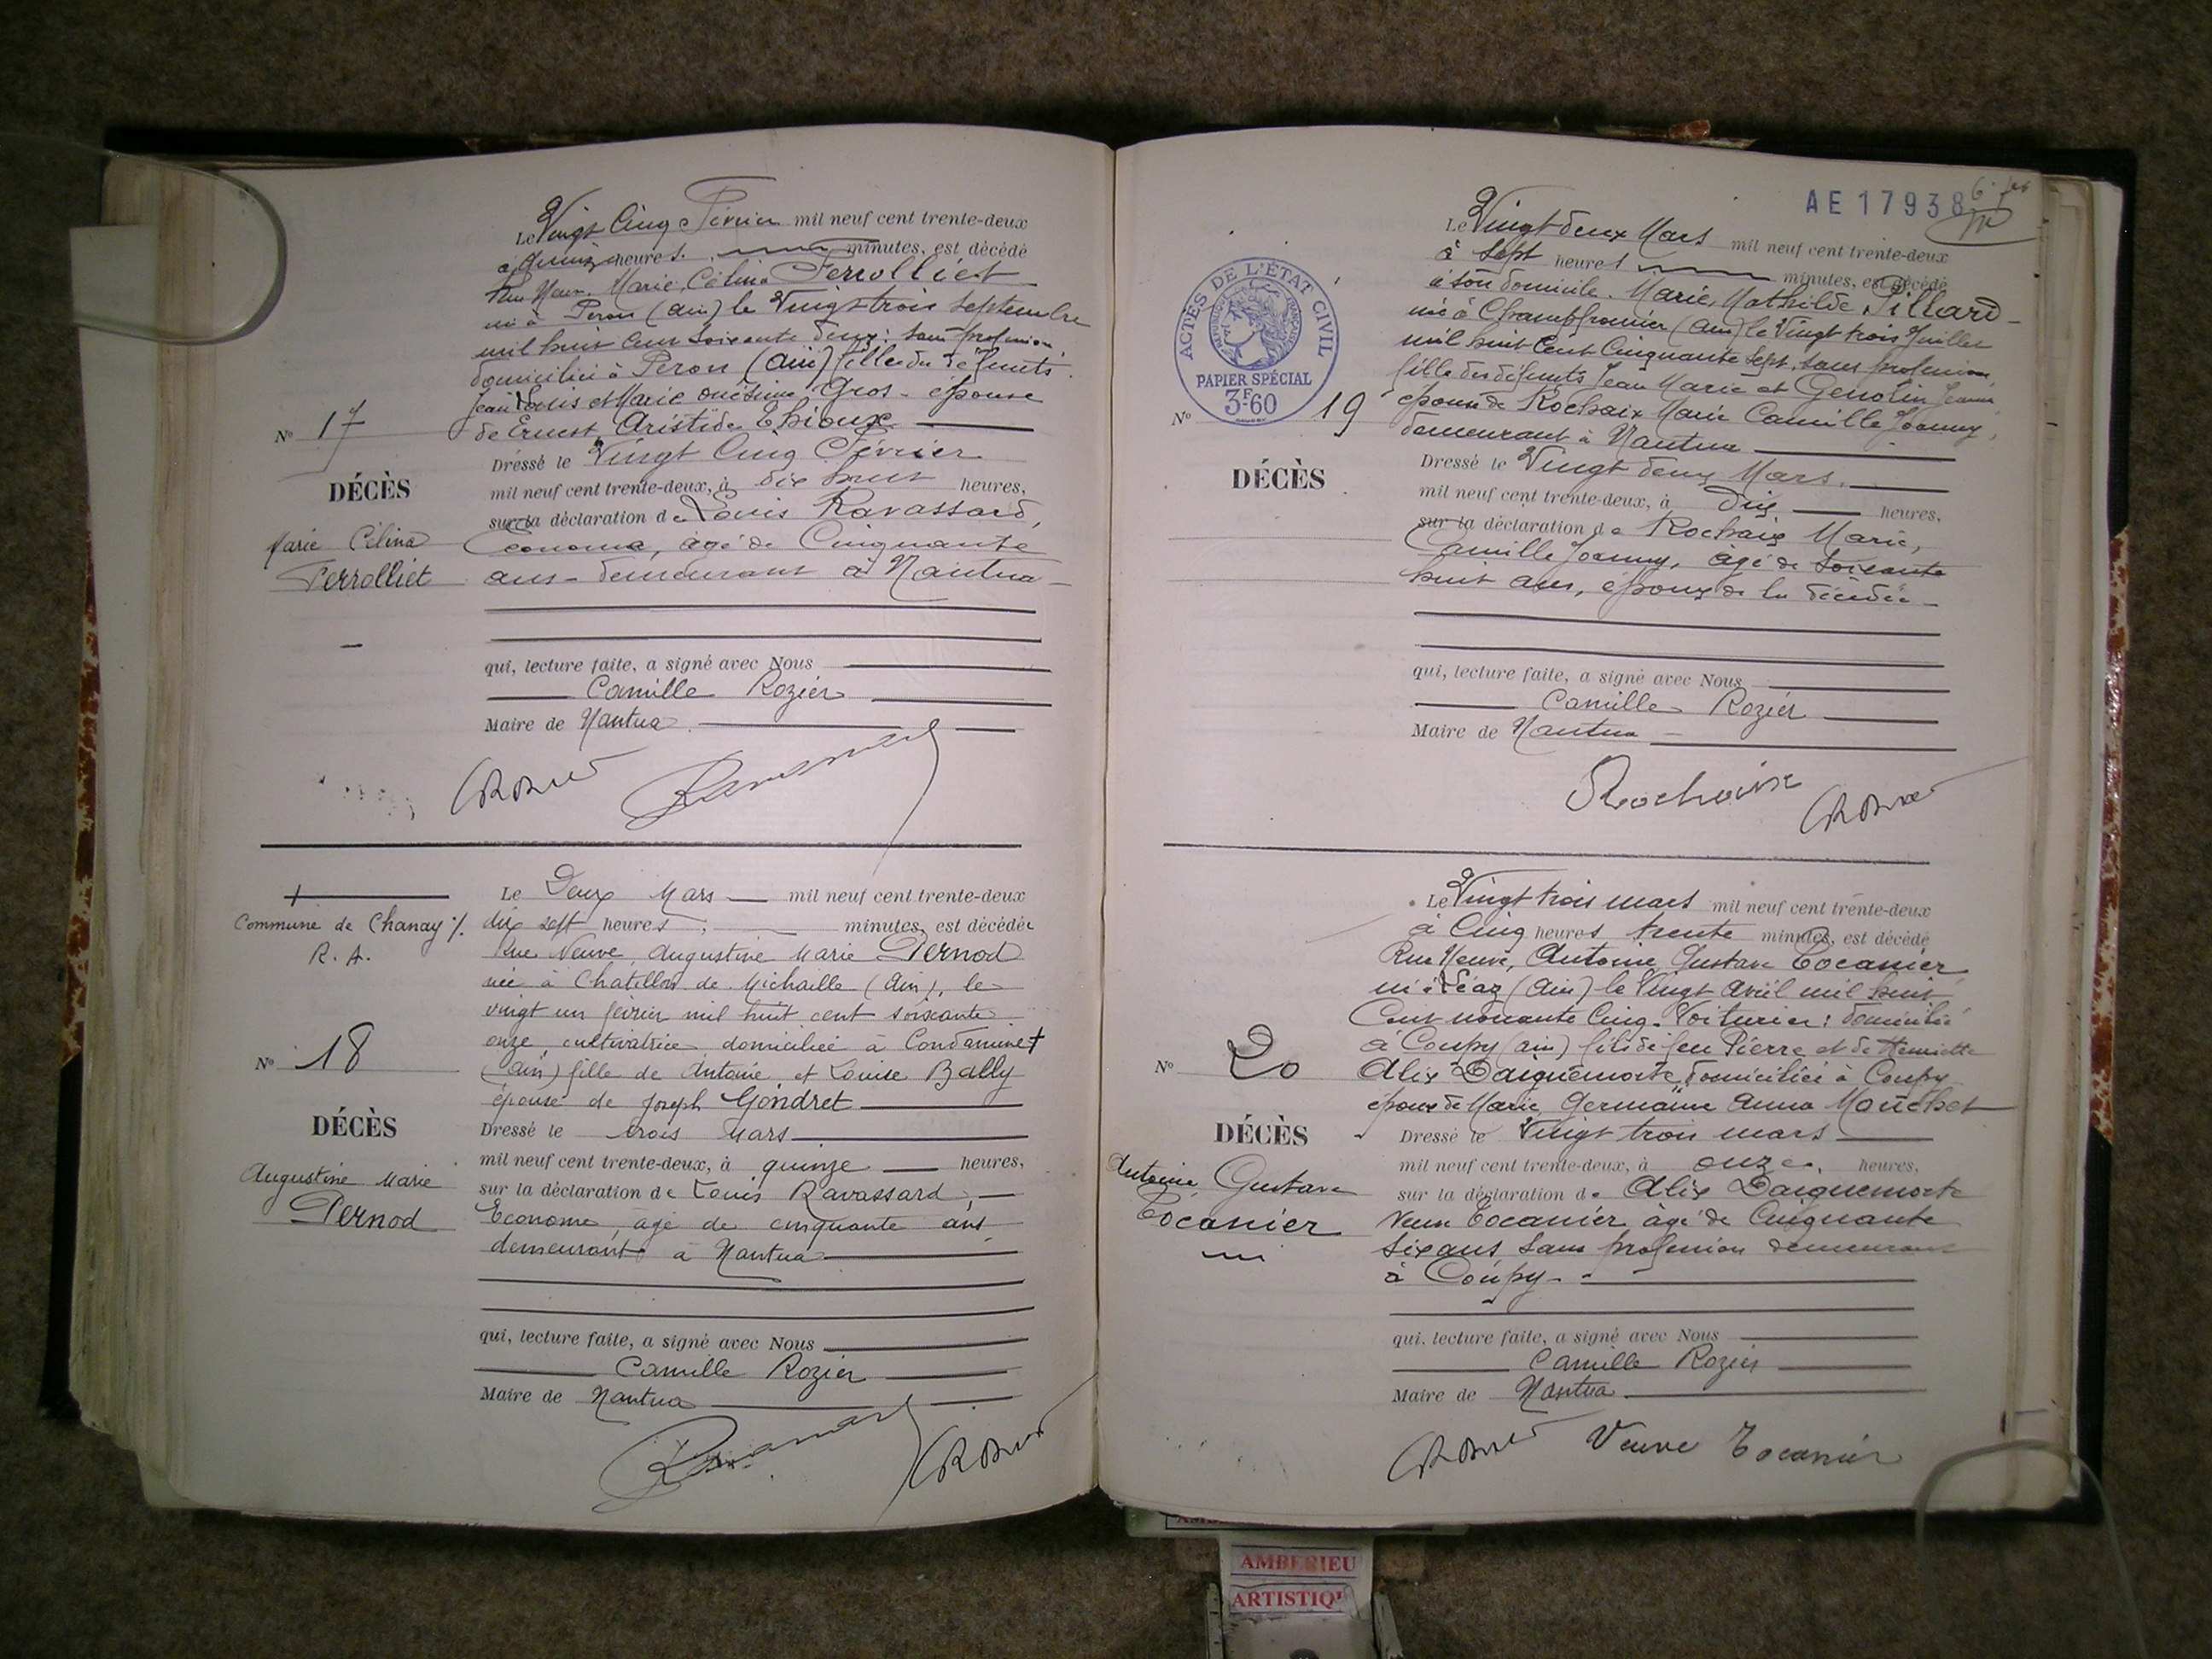 Le Vingt Cinq Février mil neuf cent trente-deux
à quinze heures minutes, est décédé
Rue Neuve, Marie, Célina Ferrolliet
né à Peron (ain) le Vingt trois Septembre
mil huit cent soixante deux, sans profession,
domicilié à Peron (ain) fille des défunts
Jean Louis et Marie Onésime Gros - épouse
de Ernest, Aristide Thioux
Nº 17
DÉCÈS
Marie Célina
Ferrolliet
Dressé le Vingt Cinq Février
mil neuf cent trente-deux, à dix huit heures,
sur la déclaration de Louis Ravassard,
Econome, âgé de Cinquante
ans - demeurant à Nantua -
qui, lecture faite, a signé avec Nous
Camille Rozier
Maire de Nantua
Commune de Chanay %.
R. A.
Le Deux Mars mil neuf cent trente-deux
dix sept heures, minutes, est décédée
Rue Neuve, Augustine Marie Pernod
née à Chatillon de Michaille (Ain), le
vingt un février mil huit cent soixante
onze, cultivatrice domiciliée à Condamine +
(Ain) fille de Antoine et Louise Bally
épouse de Joseph Gondret
Nº 18
DÉCÈS
Augustine Marie
Pernod
Dressé le trois Mars
mil neuf cent trente-deux, à quinze heures,
sur la déclaration de Louis Ravassard,
Econome, âgé de cinquante ans,
demeurant à Nantua
qui, lecture faite, a signé avec Nous
Camille Rozier
Maire de Nantua
AE 17938
ACTES DE L'ÉTAT CIVIL
RÉPUBLIQUE FRANÇAISE
PAPIER SPÉCIAL
3F60
Le Vingt deux Mars mil neuf cent trente-deux
à Sept heures minutes, est décédé
à son domicile. Marie, Mathilde Pillard -
né à Champfromier (ain) le Vingt trois Juillet
mil huit Cent Cinquante Sept, sans profession,
fille des défunts Jean Marie et Genolin Jeanne
épouse de Rochaix Marie Camille Joanny,
demeurant à Nantua
Nº 19
DÉCÈS
Dressé le Vingt deux Mars.
mil neuf cent trente-deux, à Dix heures,
sur la déclaration de Rochaix Marie,
Camille Joanny, âgé de Soixante
huit ans, époux de la décédée -
qui, lecture faite, a signé avec Nous
Camille Rozier
Maire de Nantua
Rochaix
Le Vingt trois mars mil neuf cent trente-deux
à Cinq heures trente minutes, est décédé
Rue Neuve, Antoine, Gustave Tocanier,
né à Léaz (ain) le Vingt Avril mil huit
Cent nonante Cinq. Voiturier : domicilié
à Coupy (ain) fils de feu Pierre et de Henriette
Alix Daiguemorte, domiciliée à Coupy
époux de Marie, Germaine Anna Mouchet
Nº 20
DÉCÈS
Antoine, Gustave
Tocanier
Dressé le Vingt trois mars
mil neuf cent trente-deux, à onze, heures,
sur la déclaration de Alix Daiguemorte
Veuve Tocanier, âgé de Cinquante
Six ans Sans profession demeurant
à Coupy -
qui, lecture faite, a signé avec Nous
Camille Rozier
Maire de Nantua
Veuve Tocanier
AMBERIEU
ARTISTIQU